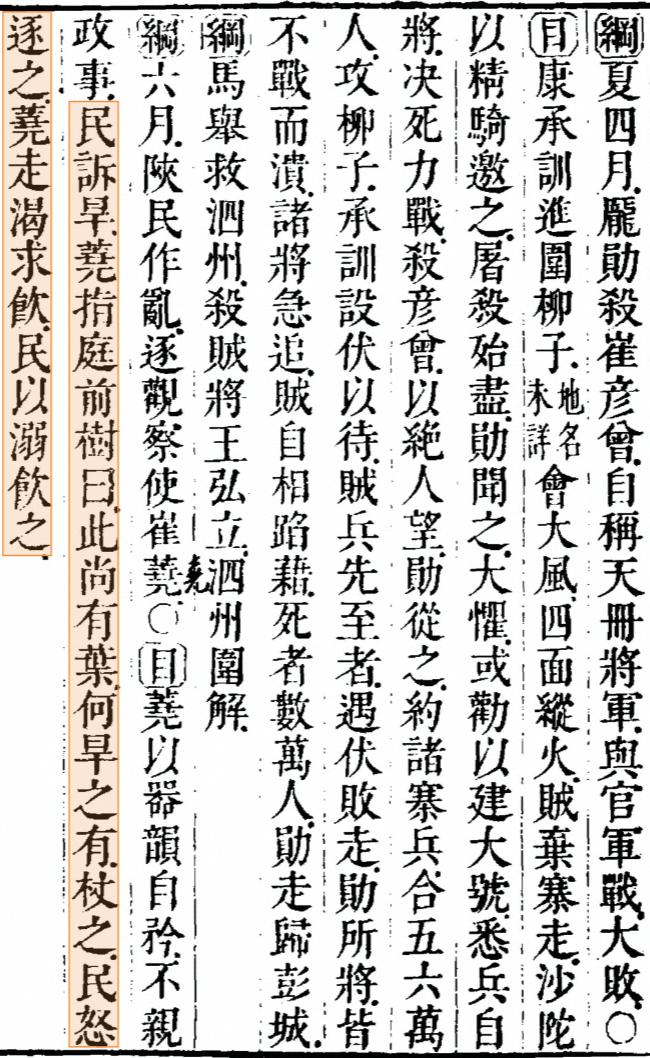 綱夏四月龐勛殺崔彥曾自稱天冊將軍與官軍戰大敗○
目康承訓進圍柳子地名未詳會大風四面縱火賊棄寨走沙陀
以精騎邀之屠殺殆盡勛聞之大懼或勸以建大號悉兵自
將決死力戰殺彥曾以絕人望勛從之約諸寨兵合五六萬
人攻柳子承訓設伏以待賊兵先至者遇伏敗走勛所將皆
不戰而潰諸將急追賊自相蹈藉死者數萬人勛走歸彭城
綱馬舉救泗州殺賊將王弘立泗州圍解
綱六月陝民作亂逐觀察使崔蕘堯○目蕘以器韻自矜不親
政事民訴旱蕘指庭前樹曰此尚有葉何旱之有杖之民怒
逐之蕘走渴求飲民以溺飲之